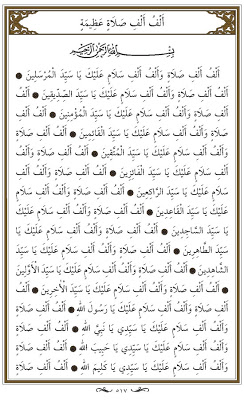 أَلْفُ أَلْفِ صَلَاةٍ عَظِيمَةٍ
بِسْمِ اللَّهِ الرَّحْمَٰنِ الرَّحِيمِ
أَلْفُ أَلْفِ صَلَاةٍ وَأَلْفُ أَلْفِ سَلَامٍ عَلَيْكَ يَا سَيِّدَ الْمُرْسَلِينَ ●
أَلْفُ أَلْفِ صَلَاةٍ وَأَلْفُ أَلْفِ سَلَامٍ عَلَيْكَ يَا سَيِّدَ الصِّدِّيقِينَ ● أَلْفُ
أَلْفِ صَلَاةٍ وَأَلْفُ أَلْفِ سَلَامٍ عَلَيْكَ يَا سَيِّدَ الْمُؤْمِنِينَ ● أَلْفُ أَلْفِ
صَلَاةٍ وَأَلْفُ أَلْفِ سَلَامٍ عَلَيْكَ يَا سَيِّدَ الْقَائِمِينَ ● أَلْفُ أَلْفِ صَلَاةٍ
وَأَلْفُ أَلْفِ سَلَامٍ عَلَيْكَ يَا سَيِّدَ الْمُتَّقِينَ ● أَلْفُ أَلْفِ صَلَاةٍ وَأَلْفُ
أَلْفِ سَلَامٍ عَلَيْكَ يَا سَيِّدَ الْفَائِزِينَ ● أَلْفُ أَلْفِ صَلَاةٍ وَأَلْفُ أَلْفِ
سَلَامٍ عَلَيْكَ يَا سَيِّدَ الرَّاكِعِينَ ● أَلْفُ أَلْفِ صَلَاةٍ وَأَلْفُ أَلْفِ سَلَامٍ
عَلَيْكَ يَا سَيِّدَ الْقَاعِدِينَ ● أَلْفُ أَلْفِ صَلَاةٍ وَأَلْفُ أَلْفِ سَلَامٍ عَلَيْكَ
يَا سَيِّدَ السَّاجِدِينَ ● أَلْفُ أَلْفِ صَلَاةٍ وَأَلْفُ أَلْفِ سَلَامٍ عَلَيْكَ يَا
سَيِّدَ الطَّاهِرِينَ ● أَلْفُ أَلْفِ صَلَاةٍ وَأَلْفُ أَلْفِ سَلَامٍ عَلَيْكَ يَا سَيِّدَ
الشَّاهِدِينَ ● أَلْفُ أَلْفِ صَلَاةٍ وَأَلْفُ أَلْفِ سَلَامٍ عَلَيْكَ يَا سَيِّدَ الْأَوَّلِينَ
● أَلْفُ أَلْفِ صَلَاةٍ وَأَلْفُ أَلْفِ سَلَامٍ عَلَيْكَ يَا سَيِّدَ الْآخِرِينَ ● أَلْفُ
أَلْفِ صَلَاةٍ وَأَلْفُ أَلْفِ سَلَامٍ عَلَيْكَ يَا رَسُولَ اللَّهِ ● أَلْفُ أَلْفِ صَلَاةٍ
وَأَلْفُ أَلْفِ سَلَامٍ عَلَيْكَ يَا سَيِّدِي يَا نَبِيَّ اللَّهِ ● أَلْفُ أَلْفِ صَلَاةٍ
وَأَلْفُ أَلْفِ سَلَامٍ عَلَيْكَ يَا سَيِّدِي يَا حَبِيبَ اللَّهِ ● أَلْفُ أَلْفِ صَلَاةٍ
وَأَلْفُ أَلْفِ سَلَامٍ عَلَيْكَ يَا سَيِّدِي يَا كَلِيمَ اللَّهِ ● أَلْفُ أَلْفِ صَلَاةٍ
٥١٧